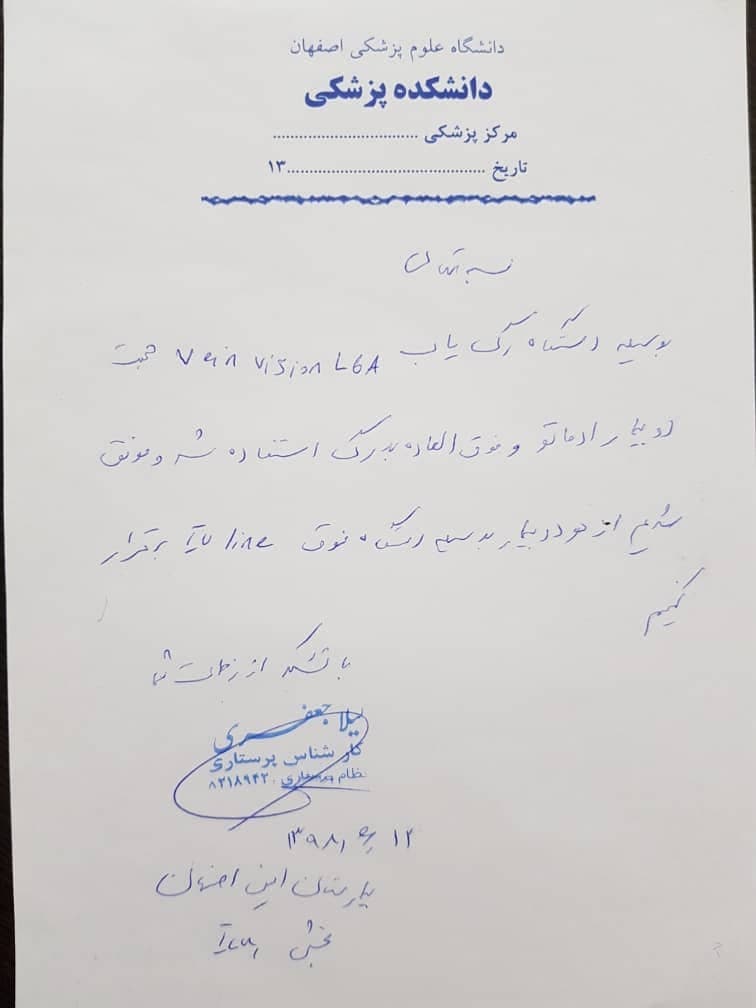 دانشگاه علوم پزشکی اصفهان
دانشکده پزشکی
مرکز پزشکی ................................
تاریخ ............................................۱۳
بسمه تعالی
بوسیله دستگاه رگ یاب Vein Vision L6A جهت
دو بیمار ادماتو و فوق العاده بدرگ استفاده شد و موفق
شدیم از هر دو بیمار بوسیله دستگاه فوق line برقرار
کنیم
با تشکر از زحمات شما
لیلا جعفری
کارشناس پرستاری
نظام پرستاری ۸۲۱۸۹۴۲۰
۱۳۹۸ ۱۲
بیمارستان امین اصفهان
بخش